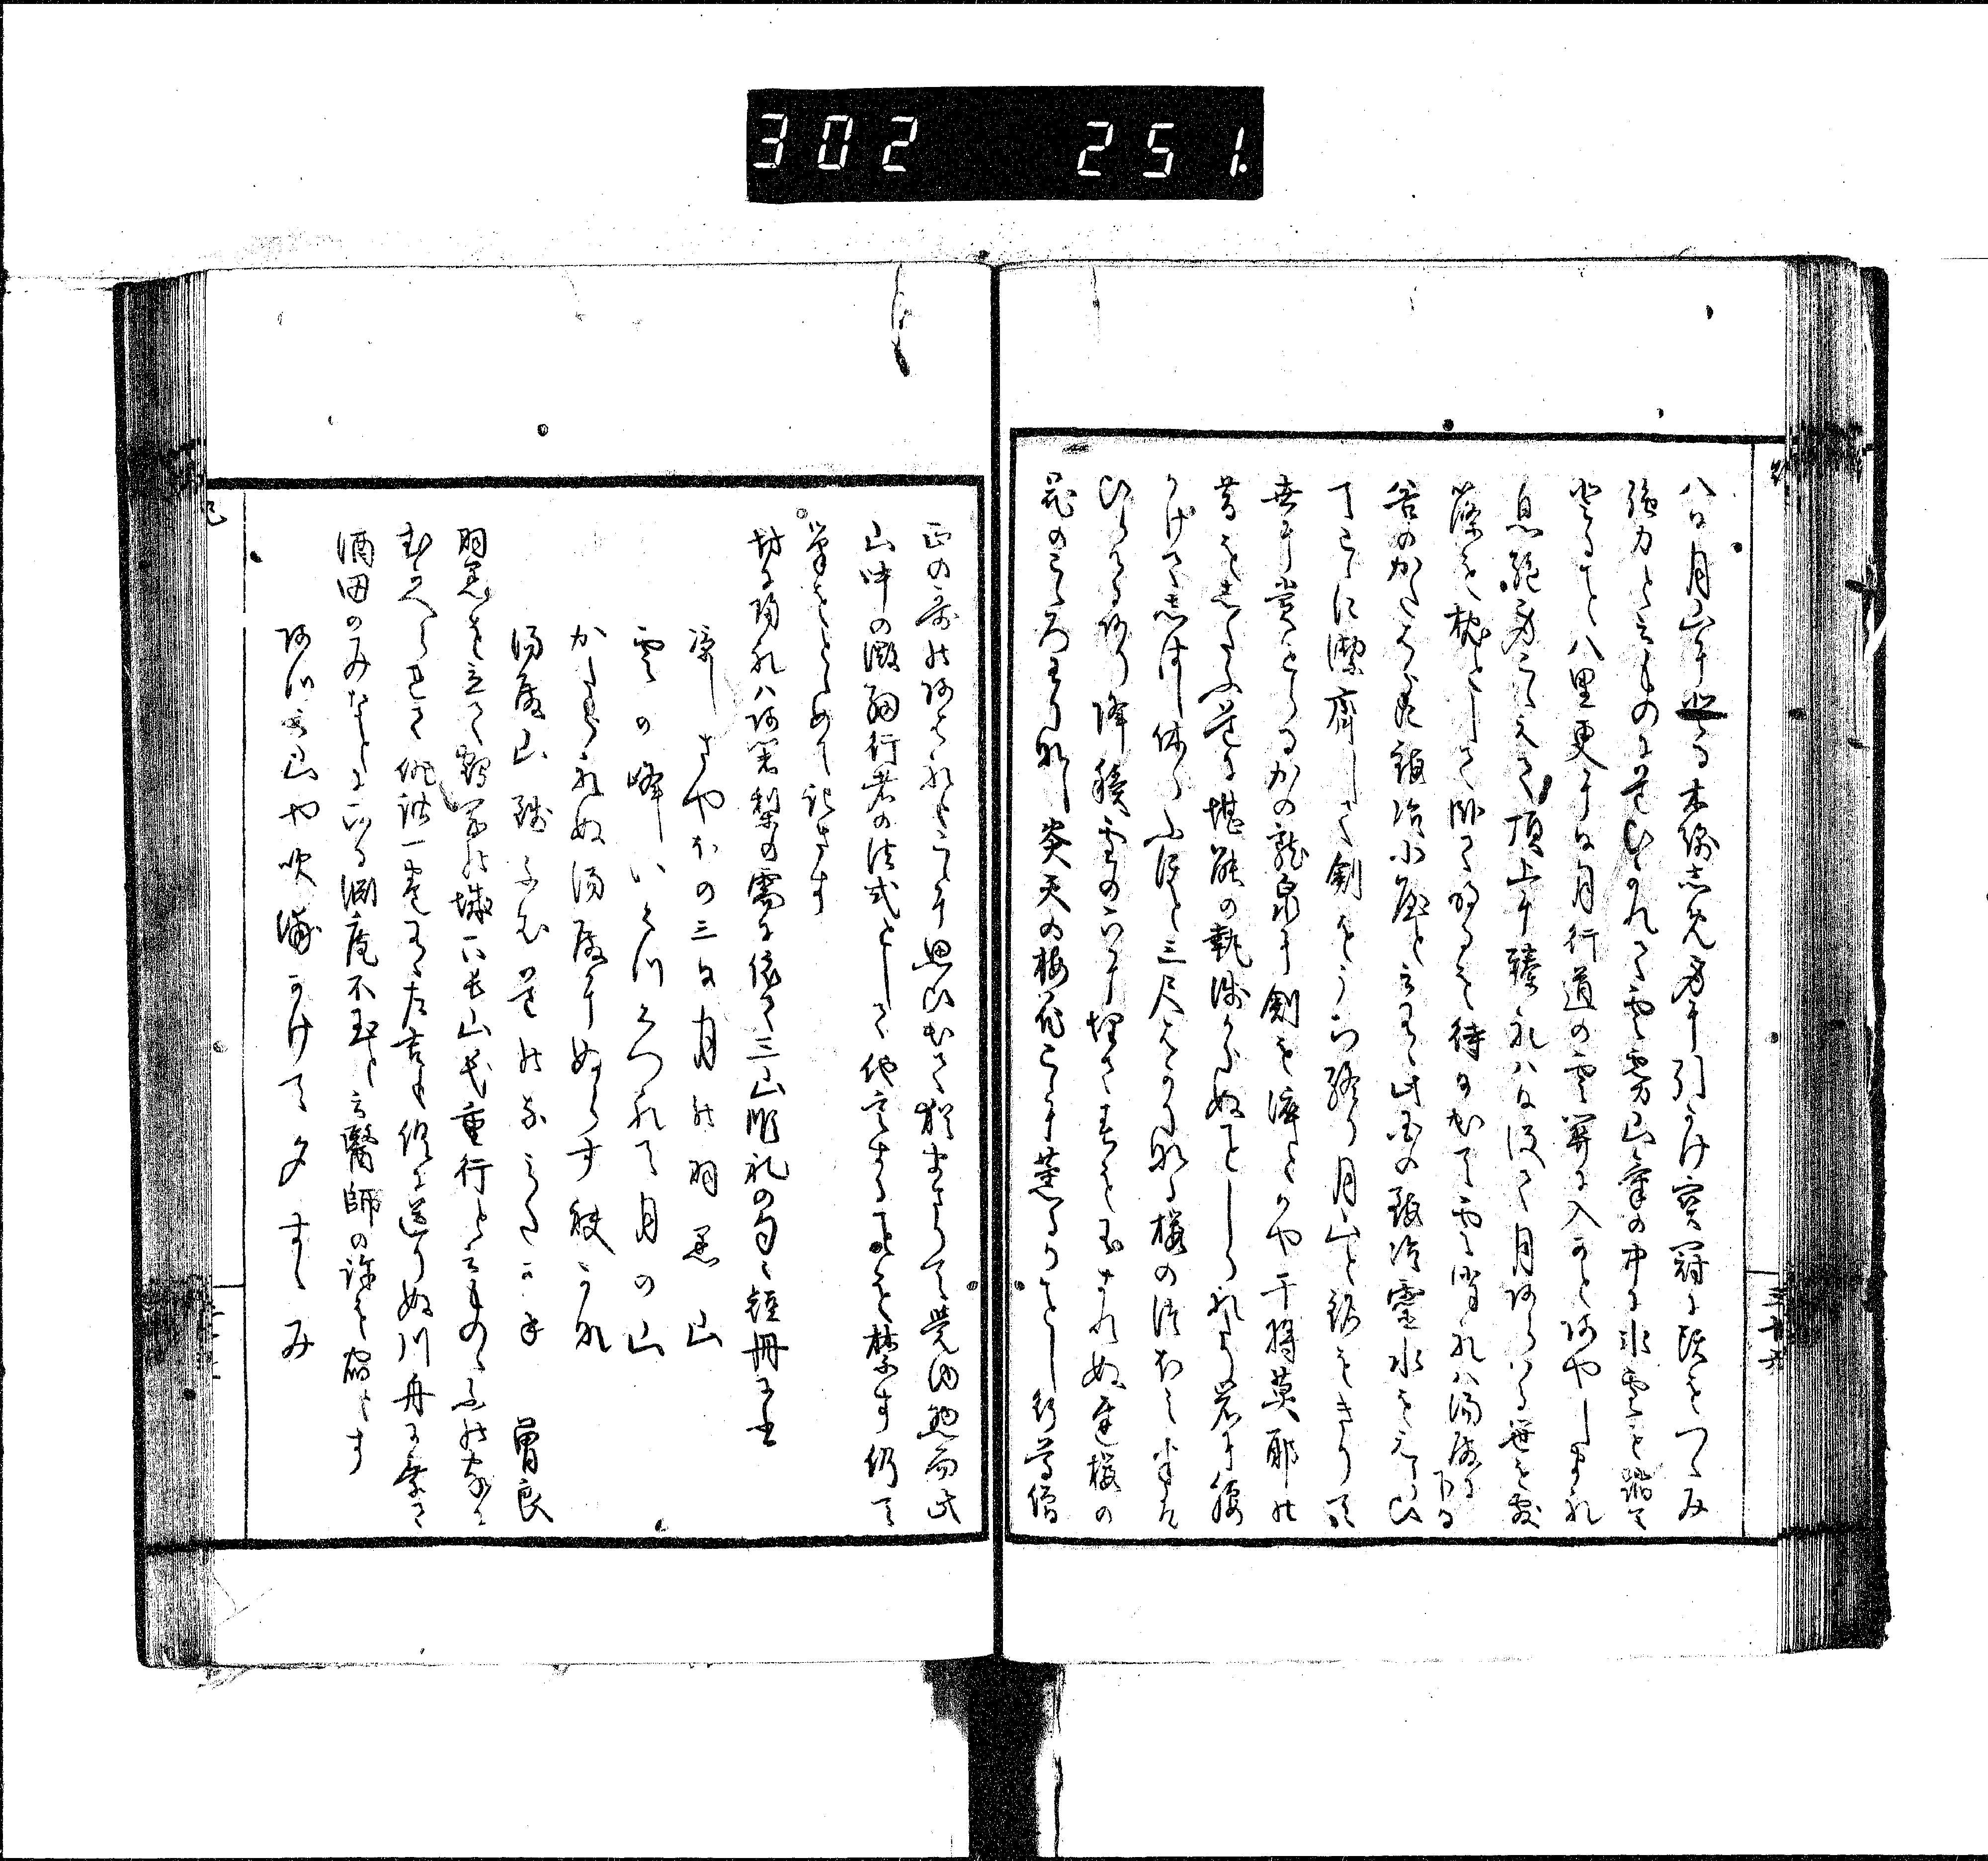 302 251
八日月山に登る木綿しめ身に引かけ宝冠に頭をつゝみ
強力と云ものに道ひかれて雲霧山気の中に氷雪を踏て
登ること八里更に日月行道の雲関に入かとあやしまれ
息絶身こゝえて頂上に臻れハ日没て月あらハる笹を敷
篠を枕として臥て明るを待日出て雲消れハ湯殿に下る
谷のかたハらに鍛冶小屋と云有此国の鍛冶霊水をえらひ
てこゝに潔斎して剣をうち終り月山と銘をきりて
世に賞せらるかの龍泉に剣を淬とかや干将莫耶の
昔をしたふ道に堪能の執浅からぬことしられたり岩に腰
かけてしはし休らふほと三尺はかりなる桜の つほみ半は
ひらけるあり降積雪の下に埋て春をわすれぬ遅桜の
花のこゝろわりなし炎天の梅花こゝに薫るかことし行尊僧
正の哥のあはれもこゝに思ひ出て猶まさりて覚ゆ惣而此
山中の微細行者の法式として他言する事を禁す仍て
筆をとゝめて記さす
坊に帰れハ阿闍梨の需に依て三山順礼の句々短冊に書
涼しさやほの三日月の羽黒山
雲の峰いくつくつれて月の山
かたられぬ湯殿にぬらす袂かな
湯殿山銭ふむ道のなみたかな 曽良
羽黒を立て鶴岡の城下長山氏重行と云ものゝふの家に
むかへられて俳諧一巻有左吉も供に送りぬ川舟に乗て
酒田のみなとに下る淵庵不玉と云医師の許を宿とす
あつみ山や吹浦かけて夕すゝみ